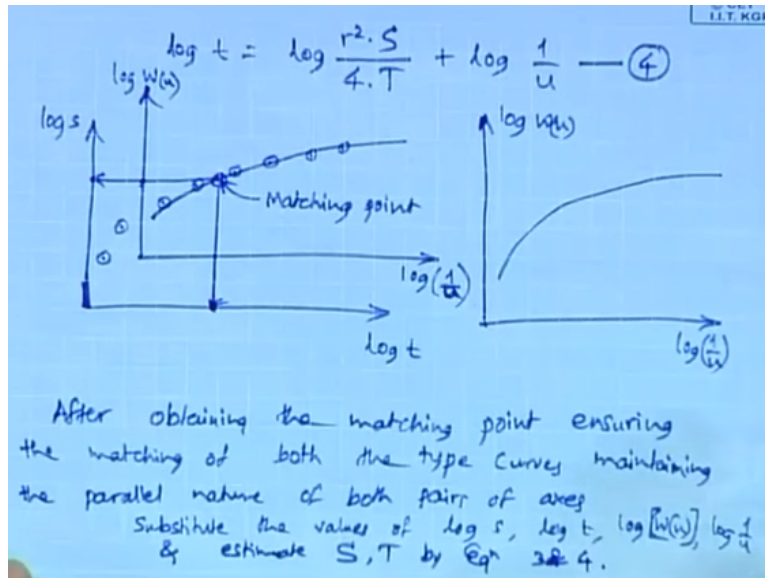 I.I.T. KG
log t = log r². S / 4. T + log 1 / u — 4
log W(u)
log s
Matching point
log (1/u)
log t
log W(u)
log (1/u)
After obtaining the matching point ensuring
the matching of both the type curves maintaining
the parallel nature of both pairs of axes
Substitute the values of log s, log t, log [W(u)], log 1/u
& estimate S, T by Eqⁿ 3 & 4.